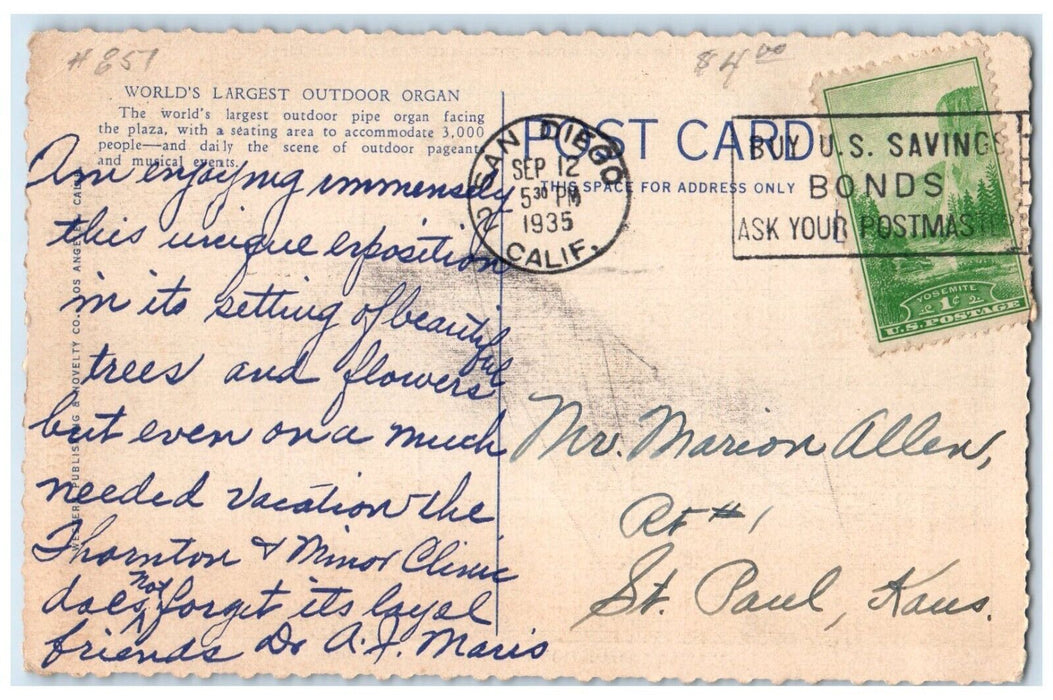 #851
8400
WORLD'S LARGEST OUTDOOR ORGAN
The world's largest outdoor pipe organ facing
the plaza, with a seating area to accommodate 3,000
people—and daily the scene of outdoor pageant
and musical events.
Am enjoying immensely
this unique exposition
in its setting of beautiful
trees and flowers
but even on a much
needed vacation the
Thornton & Minor Clinic
does not forget its loyal
friends Dr A. F. Maris
PUBLISHING & NOVELTY CO., LOS ANGELES, CALIF.
POST CARD
THIS SPACE FOR ADDRESS ONLY
SAN DIEGO
2
SEP 12
530 PM
1935
CALIF.
BUY U.S. SAVINGS
BONDS
ASK YOUR POSTMASTER
YOSEMITE
1¢
U.S. POSTAGE
Mr. Marion Allen,
Rt #1
St. Paul, Kans.